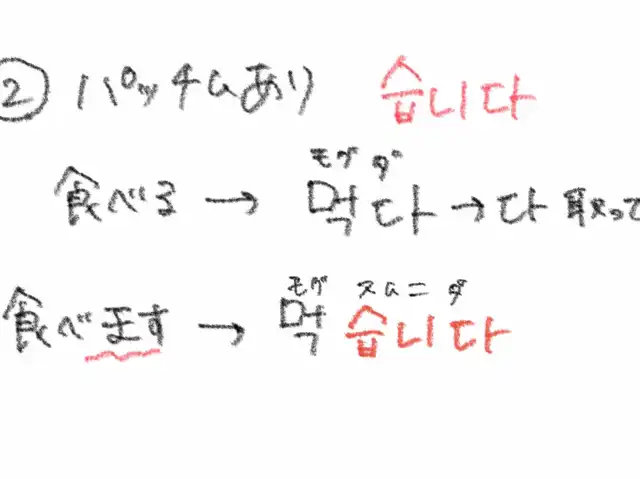 ② パッチムあり 습니다
モグ ダ
食べる → 먹다 → 다 取って
モグ スムニダ
食べます → 먹습니다